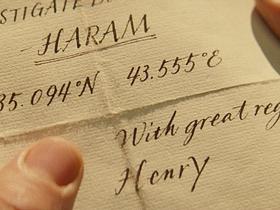 STIGATE
- HARAM -
35.094°N 43.555°E
With great reg
Henry